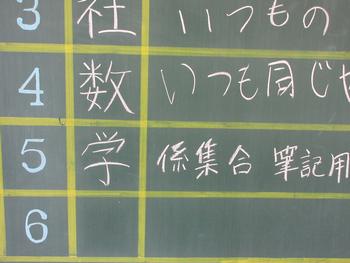 3 社 いつもの
4 数 いつも同じ
5 学 係集合 筆記用
6